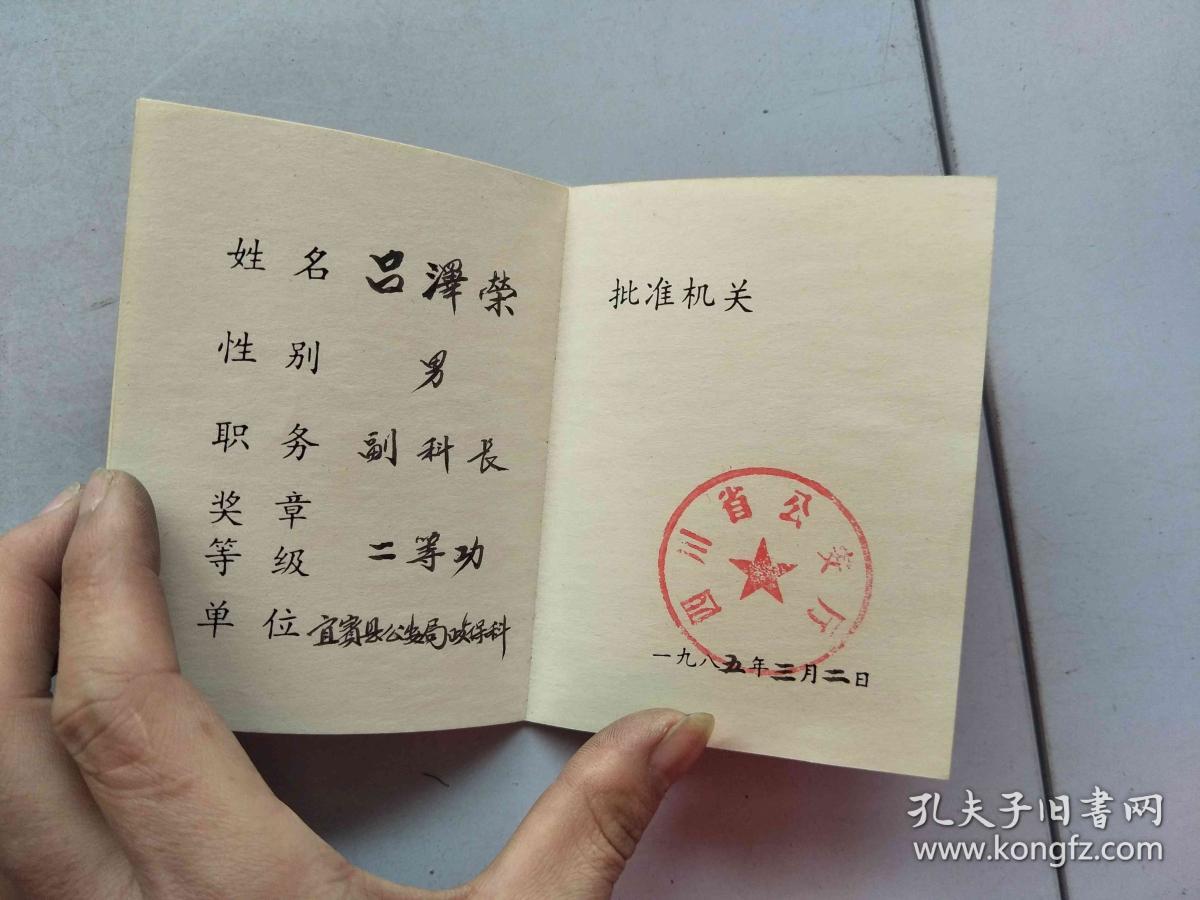 姓名 吕澤榮
性别 男
职务 副科长
奖章
等级 二等功
单位 宜賓县公安局政保科
批准机关
四川省公安厅
一九八五年三月二日
孔夫子旧书网
www.kongfz.com